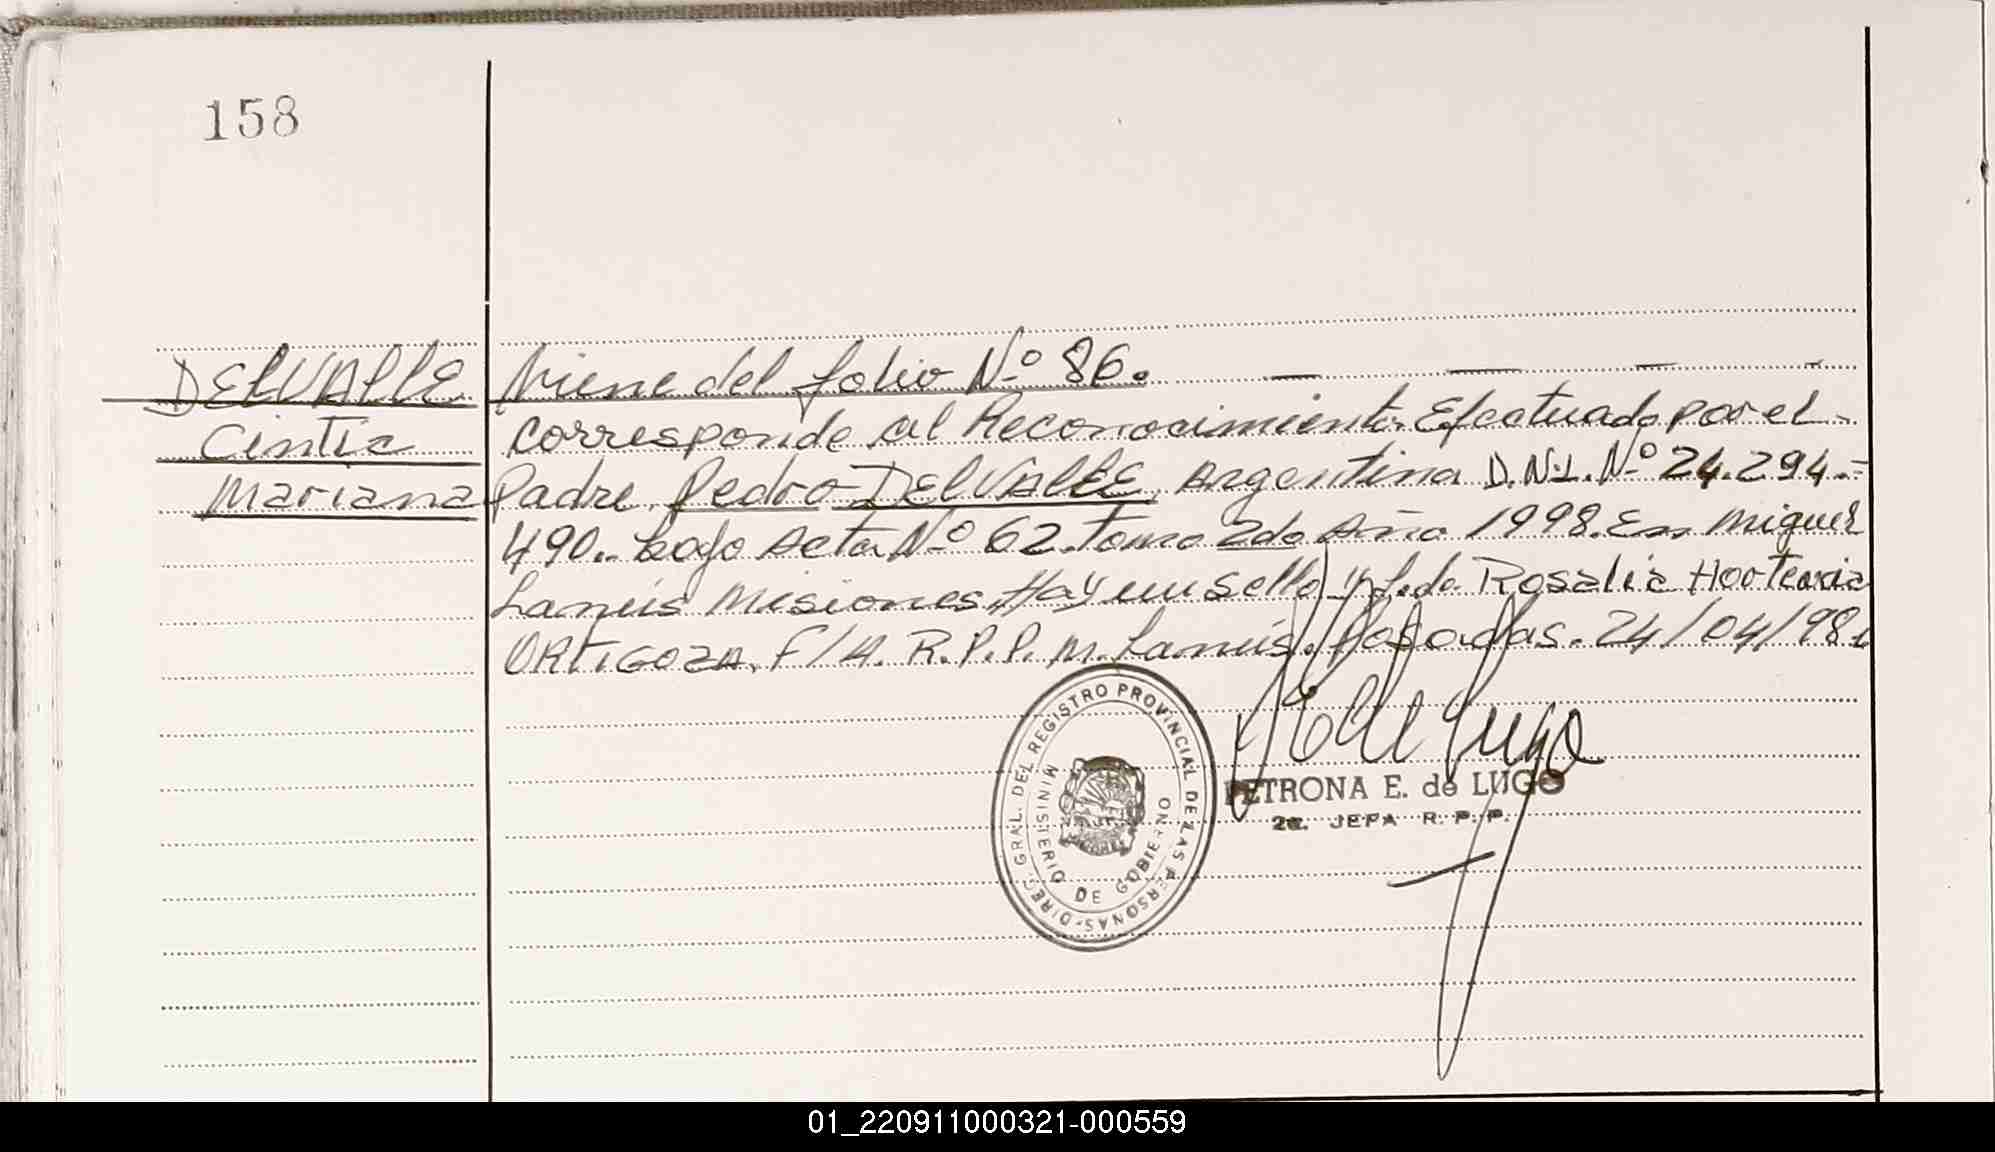 158
DELVALLE
Cintia
Mariana
Viene del folio Nº 86. — — — -
Corresponde al Reconocimiento Efectuado por el-
Padre Pedro DELVALLE, Argentina D.N.I. Nº 24.294.=
490.- bajo Acta Nº 62. Tomo 2do Año 1998. En Miguel
Lanús Misiones. Hay un sello y f. do Rosalia Hortencia
ORTIGOZA. F/A. R.P.P. M. Lanús. Posadas. 24/04/98.
DIREC. GRAL. DEL REGISTRO PROVINCIAL DE LAS PERSONAS-
MINISTERIO DE GOBIERNO
PETRONA E. de LUGO
2a. JEFA R.P.P.
01_220911000321-000559